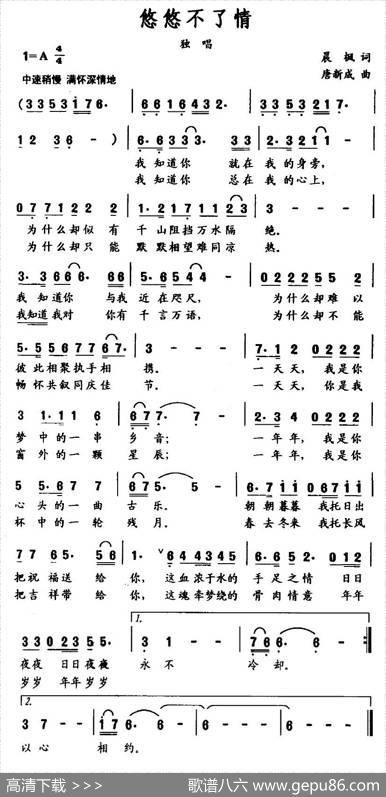 悠悠不了情
独唱
1=A 4/4
晨枫 词
中速稍慢 满怀深情地
唐新成 曲
(3 3 5 3 1 7 6· | 6 6 1 6 4 3 2· | 3 3 5 3 2 1 7·
1 2 3 6 - ) | 6· 6 3 3 3 3· | 2· 3 2 1 1 -
我知道你 就在我的身旁,
我知道你 总在我的心上,
0 7 7 7 1 2 2 2 | 1· 2 1 7 1 1 2 3 | 3 - - -
为什么却似有 千山阻挡万水隔 绝。
为什么却只能 默默相望难同凉 热。
3· 3 6 6 6 6· 6 6 | 6· 6 5 4 4 - | 0 2 2 2 2 5 5 2
我知道你 与我近在咫尺, 为什么却难以
我知道我对 你有千言万语, 为什么却不能
5· 5 5 6 7 7 6 7· | 3 - - - | 7· 1 2 0 2 2 2
彼此相聚执手相 携。 一天天,我是你
畅怀共叙同庆佳 节。 一天天,你是我
3 1· 1 1 6 | 6 7 7· 7 - | 2· 3 4 0 2 2 2
梦中的一串 乡音; 一年年,我是你
窗外的一颗 星辰; 一年年,我是你
5 5· 6 7 7 | 6 7 5· 5 - | 0 6 7 1 1 0 6 7 1 1
心头的一曲 古乐。 朝朝暮暮我托日出
杯中的一轮 残月。 春去冬来我托长风
7 7 6 5· 5 6 | 1 - - 6 4 4 3 4 5 | 3· 6 5 2· 0 1 2
把祝福送给 你,这血浓于水的 手足之情 日日
把吉祥带给 你,这魂牵梦绕的 骨肉情意 年年
1.
3 3 0 0 2 3 5 5· | 3 - 1 - | 7 6 6· 6 -
夜夜 日日夜夜 永不 冷却。
岁岁 年年岁岁
2.
3 7 - - | 1 7 6· 6 - | 6 - - -
以心 相约。
高清下载 >>>
歌谱八六 www.gepu86.com